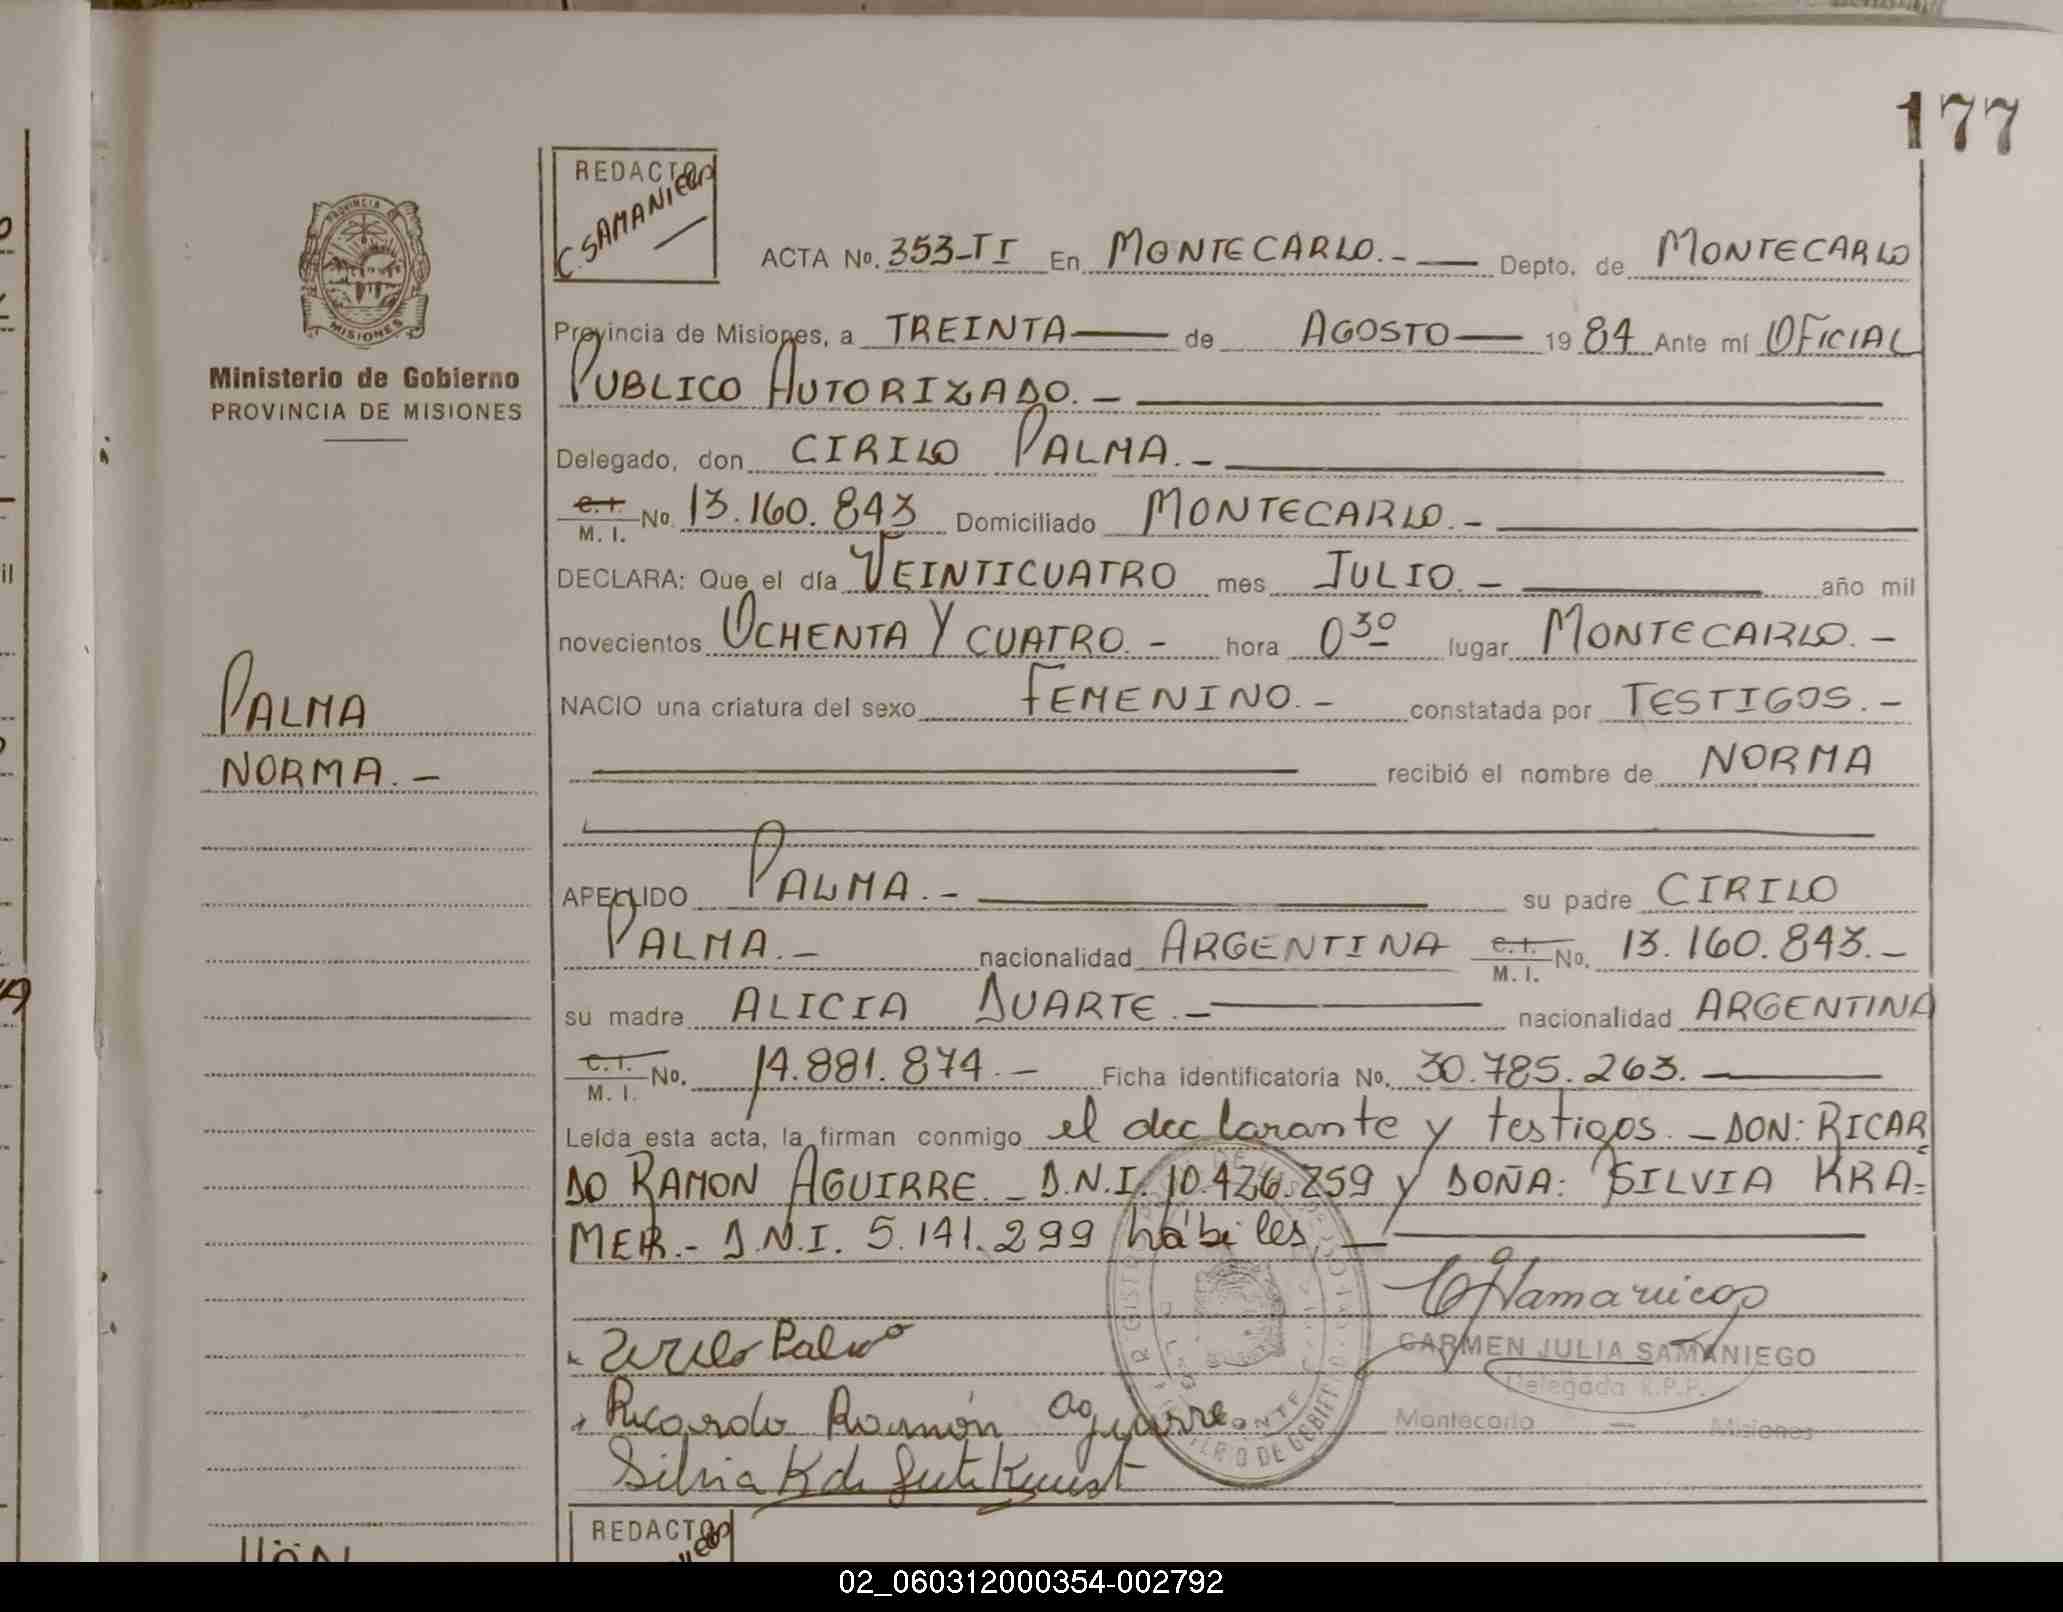 177
REDACTO
C. SAMANIEGO
PROVINCIA DE
MISIONES
ACTA No. 353-TI En MONTECARLO.- Depto. de MONTECARLO
Provincia de Misiones, a TREINTA de AGOSTO 1984 Ante mí OFICIAL
Ministerio de Gobierno
PROVINCIA DE MISIONES
PUBLICO AUTORIZADO.-
Delegado, don CIRILO PALMA.-
C. I. M. I. No. 13.160.843 Domiciliado MONTECARLO.-
DECLARA: Que el día VEINTICUATRO mes JULIO.- año mil
novecientos OCHENTA Y CUATRO.- hora 0 30 lugar MONTECARLO.-
PALMA
NORMA.-
NACIO una criatura del sexo FEMENINO.- constatada por TESTIGOS.-
recibió el nombre de NORMA
APELLIDO PALMA.- su padre CIRILO
PALMA.- nacionalidad ARGENTINA C. I. M. I. No. 13.160.843.-
su madre ALICIA DUARTE.- nacionalidad ARGENTINA
C. I. M. I. No. 14.881.874.- Ficha identificatoria No. 30.785.263.
Leída esta acta, la firman conmigo el declarante y testigos.- DON: RICAR
DO RAMON AGUIRRE.- D.N.I. 10.426.259 y DOÑA: SILVIA KRA=
MER.- D.N.I. 5.141.299 hábiles.-
CARMEN JULIA SAMANIEGO
Delegada R.P.P.
Montecarlo - Misiones
Cirilo Palma
Ricardo Ramón Aguirre
Silvia K de Gutknecht
MINISTERIO DE GOBIERNO
REDACTO
02_060312000354-002792